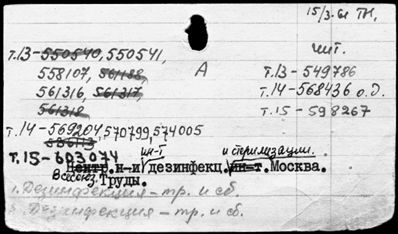 15/3.61 ТН.
чит.
т.13-550540, 550541,
558107, 561138,
561316, 561317,
561318
А
т.13-549786
т.14-568436 о.д.
т.15-598267
т.14-569204, 570799, 574005
586113
т.15-603074
ин-т и стерилизации.
Центр.н-и дезинфекц.ин-т.Москва.
Всесоюз. Труды.
1. Дезинфекция - тр. и сб.
2. Дезинфекция - тр. и сб.